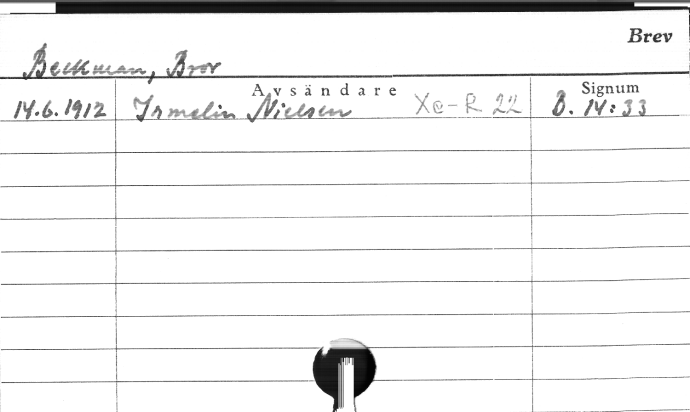 Brev
Beckman, Bror
Avsändare Signum
14.6.1912 Irmelin Nielsen Xe-R 22 B. 14:33